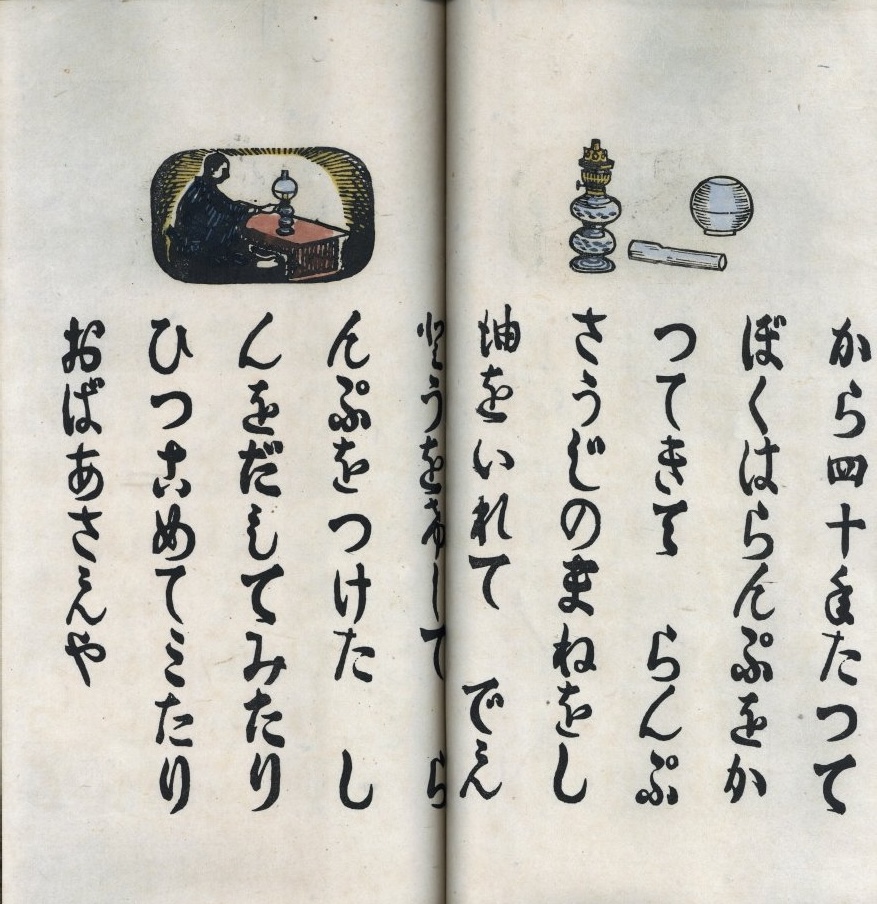 から四十年たつて
ぼくはらんぷをか
つてきて　らんぷ
さうじのまねをし
油をいれて　でん
とうをけして　ら
んぷをつけた　し
んをだしてみたり
ひつこめてミたり
おばあさんや